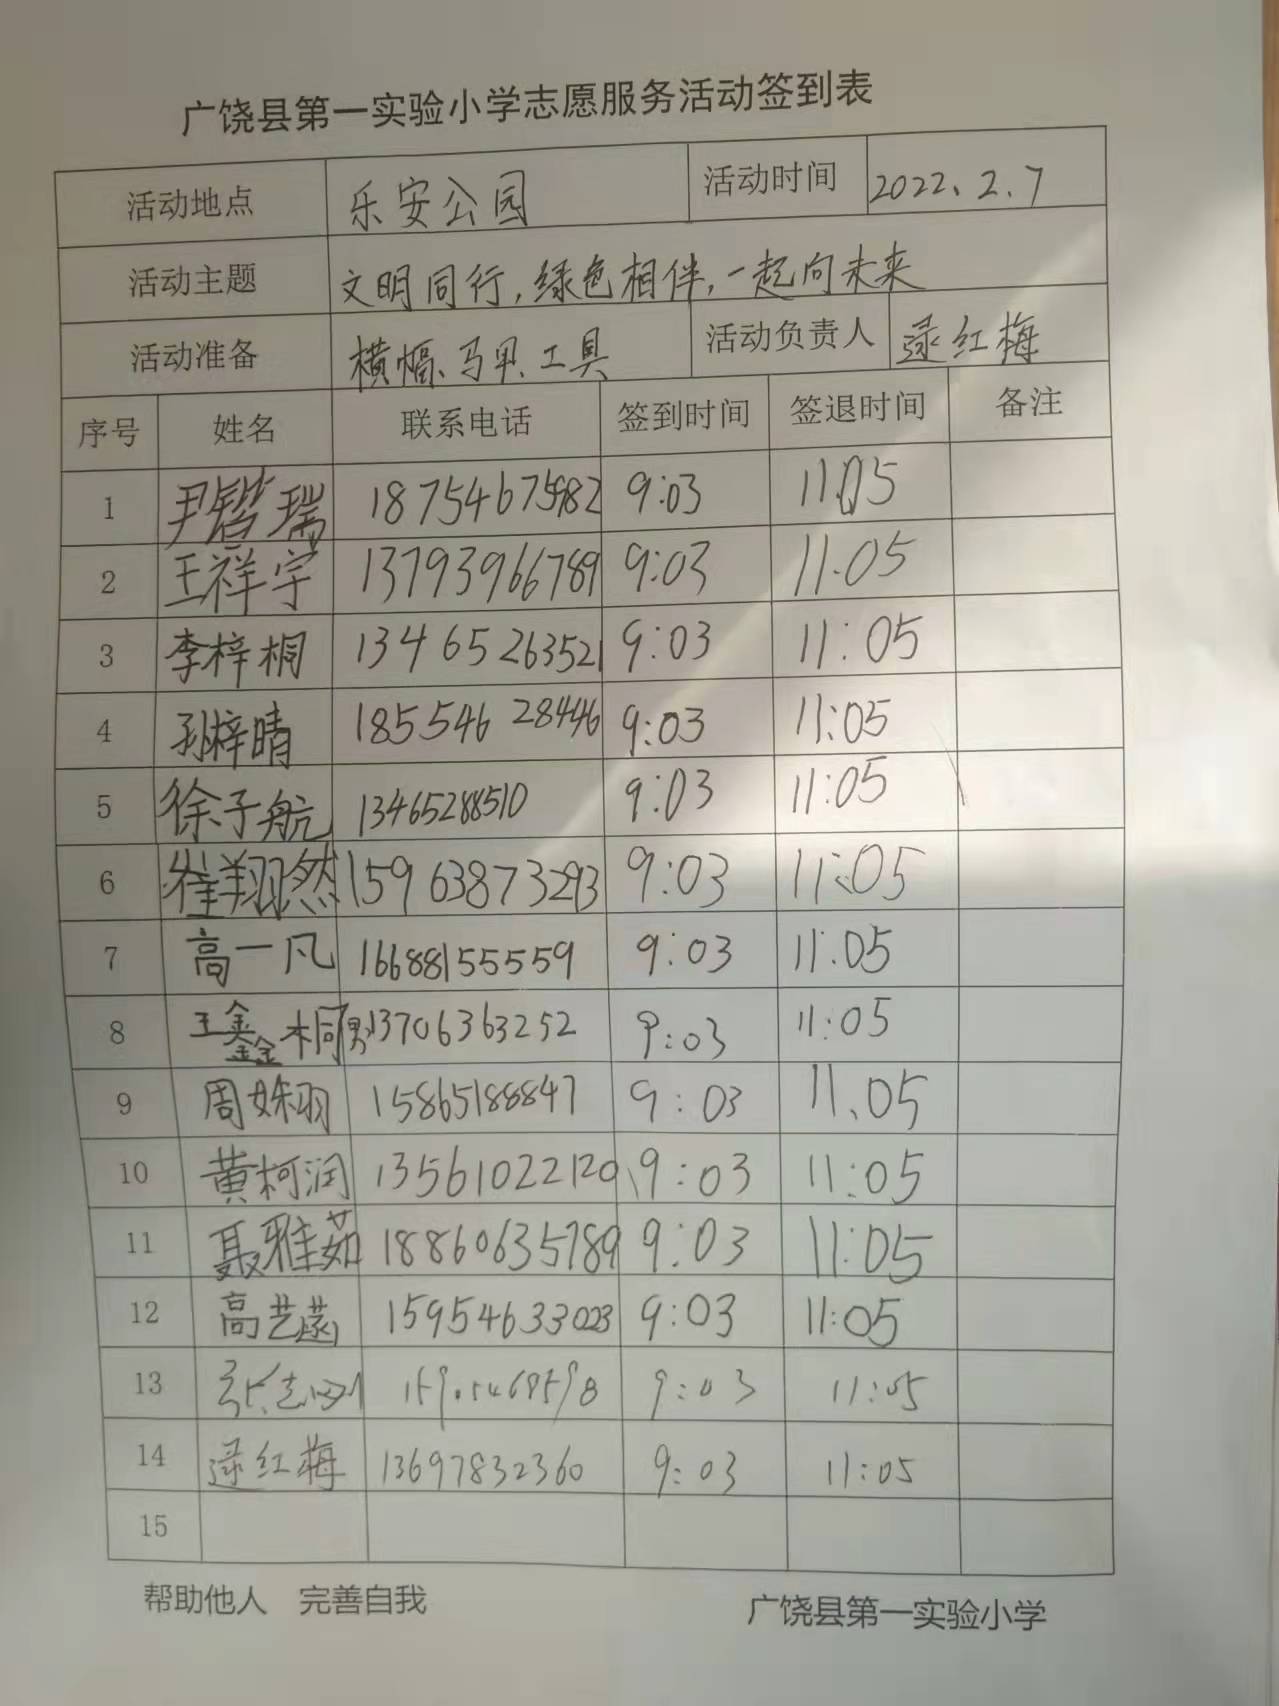 广饶县第一实验小学志愿服务活动签到表
活动地点 乐安公园 活动时间 2022.2.7
活动主题 文明同行,绿色相伴,一起向未来
活动准备 横幅、马甲、工具 活动负责人 逯红梅
序号 姓名 联系电话 签到时间 签退时间 备注
1 尹锴瑞 18754675982 9:03 11:05
2 王祥宇 13793966789 9:03 11.05
3 李梓桐 13465263521 9:03 11:05
4 孙梓晴 18554628446 9:03 11:05
5 徐子航 13465288510 9:03 11:05
6 崔翔然 15963873293 9:03 11:05
7 高一凡 16688155559 9:03 11:05
8 王鑫桐 13706363252 9:03 11:05
9 周姝羽 15865188847 9:03 11.05
10 黄柯润 13561022120 9:03 11:05
11 聂雅茹 18860635789 9:03 11:05
12 高艺菡 15954633023 9:03 11:05
13 9:03 11:05
14 逯红梅 13697832360 9:03 11:05
15
帮助他人 完善自我 广饶县第一实验小学